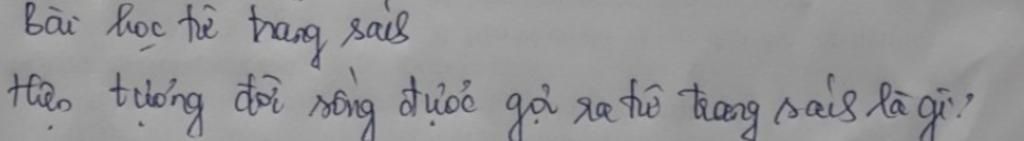 Bài học từ trang sách
Hiện tượng đời sống được gợi ra từ trang sách là gì?